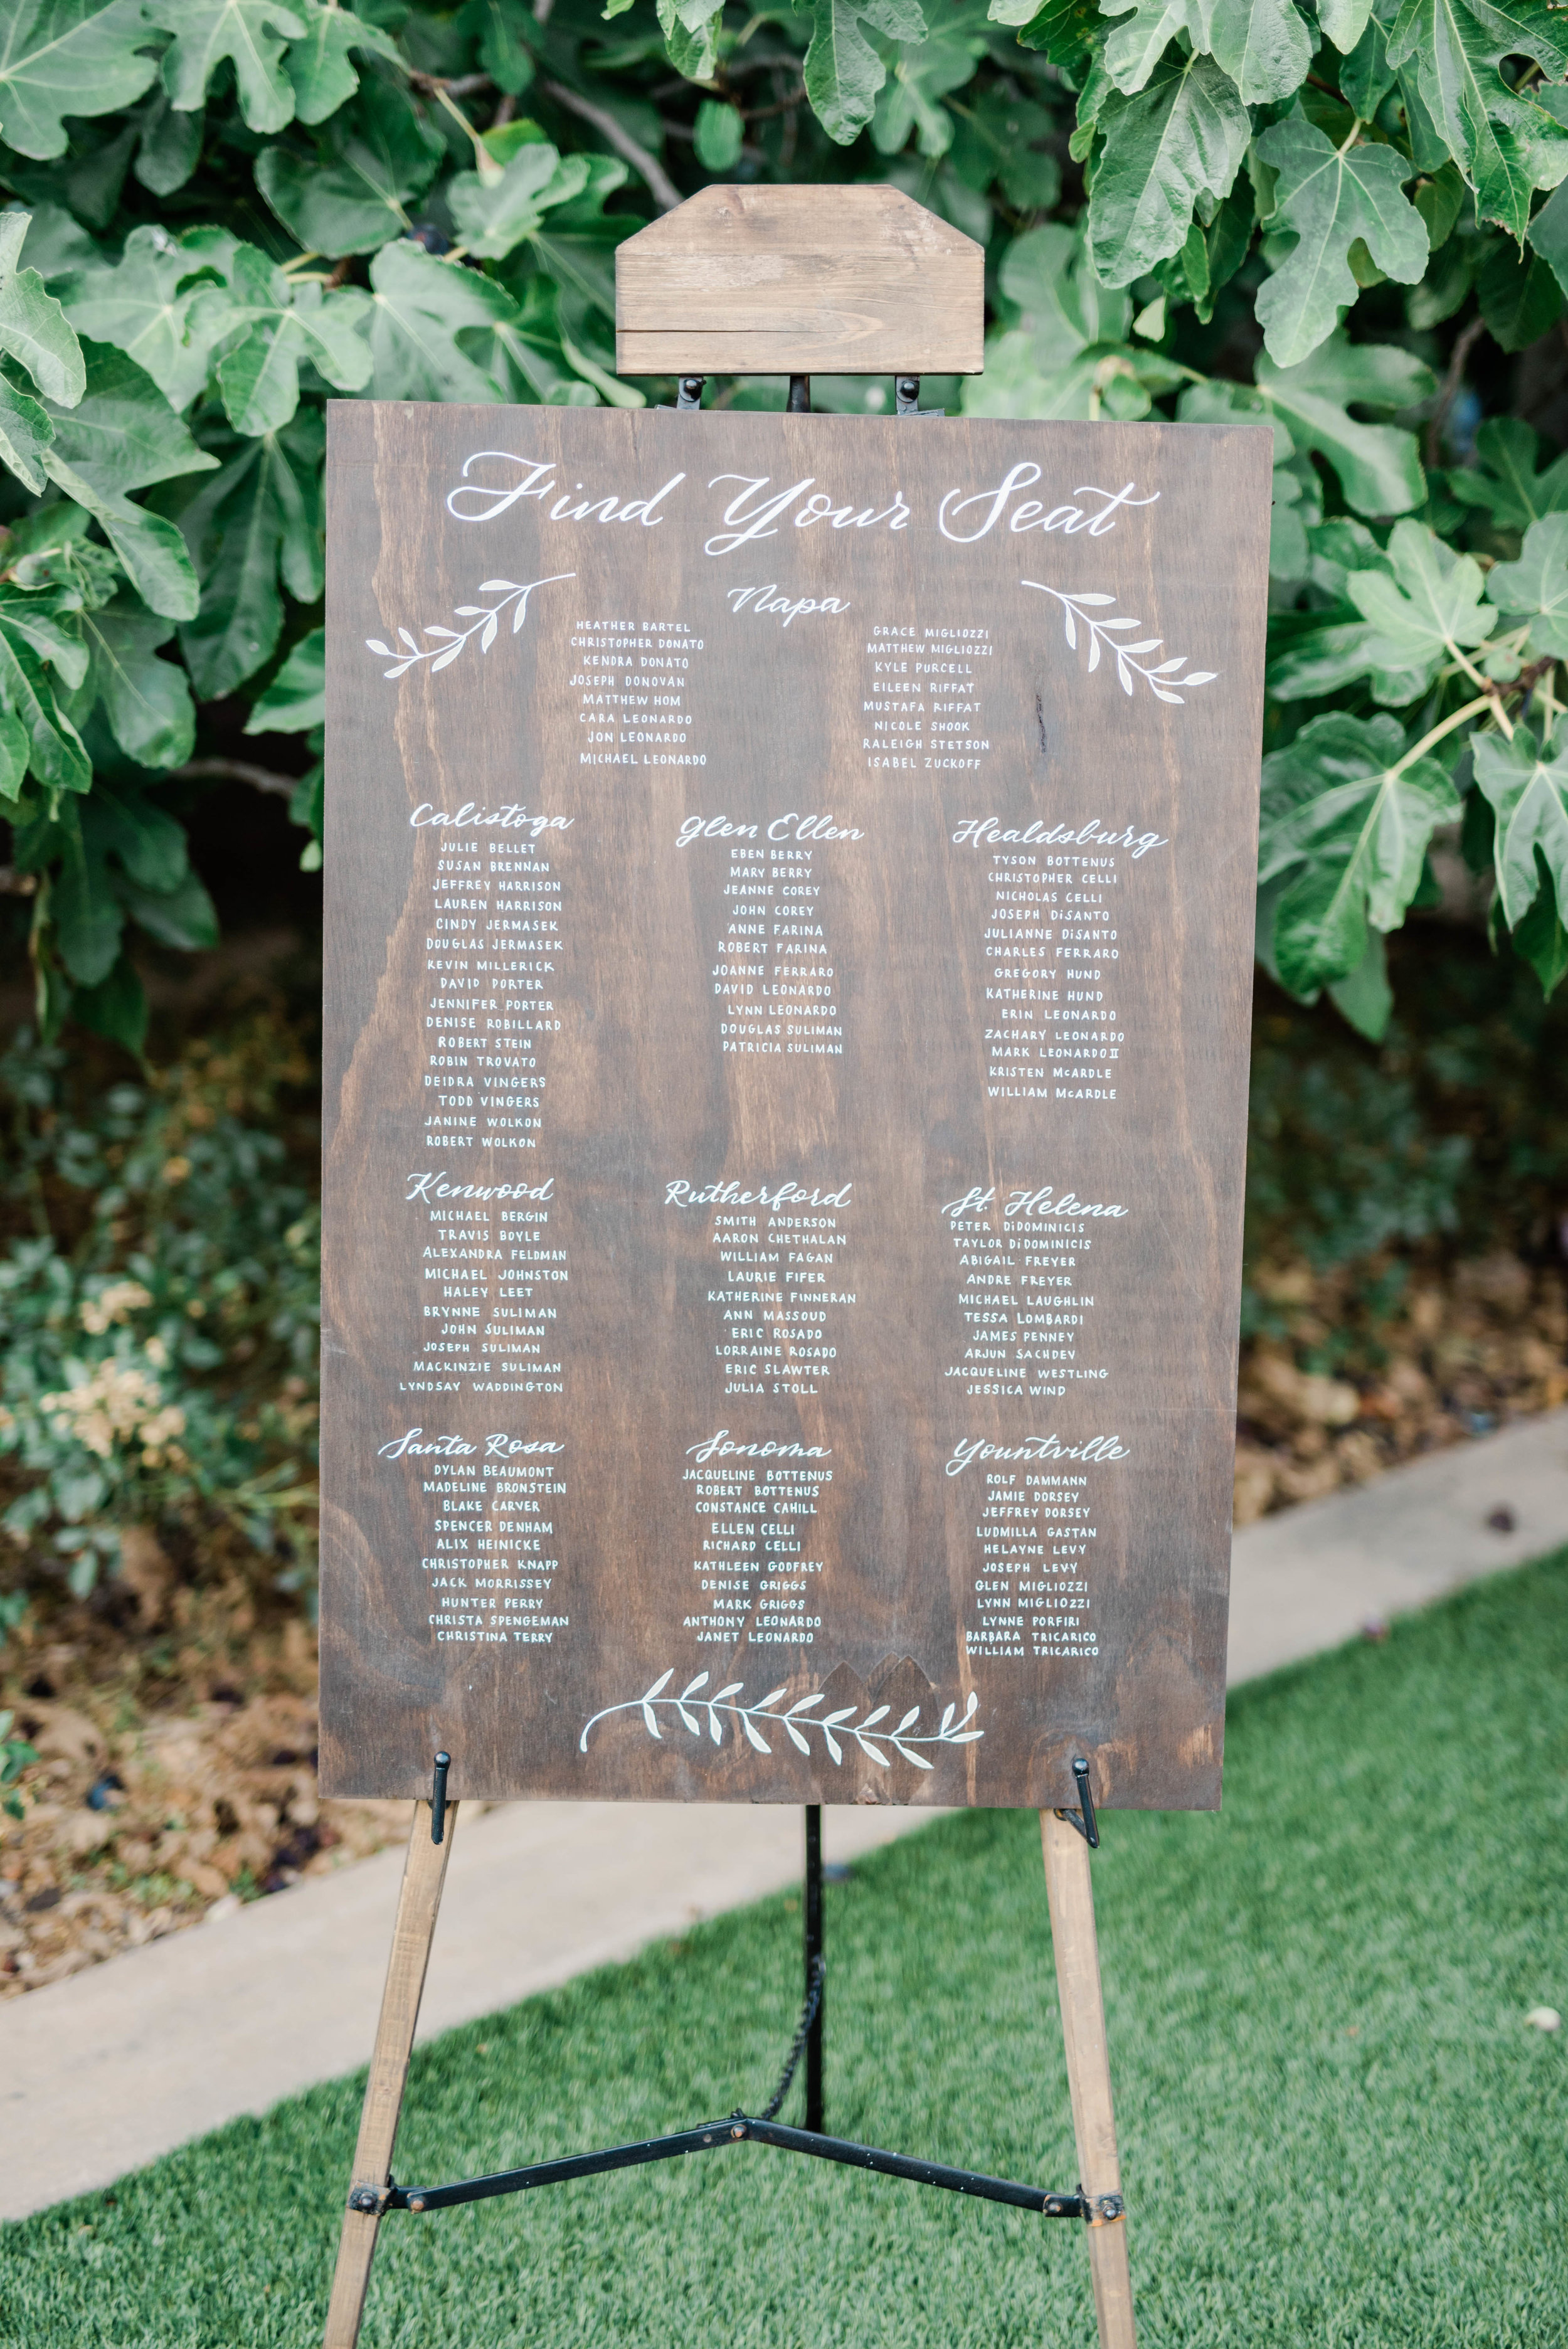 Find Your Seat
Napa
HEATHER BARTEL
CHRISTOPHER DONATO
KENDRA DONATO
JOSEPH DONOVAN
MATTHEW HOM
CARA LEONARDO
JON LEONARDO
MICHAEL LEONARDO
GRACE MIGLIOZZI
MATTHEW MIGLIOZZI
KYLE PURCELL
EILEEN RIFFAT
MUSTAFA RIFFAT
NICOLE SHOOK
RALEIGH STETSON
ISABEL ZUCKOFF
Calistoga
JULIE BELLET
SUSAN BRENNAN
JEFFREY HARRISON
LAUREN HARRISON
CINDY JERMASEK
DOUGLAS JERMASEK
KEVIN MILLERICK
DAVID PORTER
JENNIFER PORTER
DENISE ROBILLARD
ROBERT STEIN
ROBIN TROVATO
DEIDRA VINGERS
TODD VINGERS
JANINE WOLKON
ROBERT WOLKON
Glen Ellen
EBEN BERRY
MARY BERRY
JEANNE COREY
JOHN COREY
ANNE FARINA
ROBERT FARINA
JOANNE FERRARO
DAVID LEONARDO
LYNN LEONARDO
DOUGLAS SULIMAN
PATRICIA SULIMAN
Healdsburg
TYSON BOTTENUS
CHRISTOPHER CELLI
NICHOLAS CELLI
JOSEPH DiSANTO
JULIANNE DiSANTO
CHARLES FERRARO
GREGORY HUND
KATHERINE HUND
ERIN LEONARDO
ZACHARY LEONARDO
MARK LEONARDO II
KRISTEN McARDLE
WILLIAM McARDLE
Kenwood
MICHAEL BERGIN
TRAVIS BOYLE
ALEXANDRA FELDMAN
MICHAEL JOHNSTON
HALEY LEET
BRYNNE SULIMAN
JOHN SULIMAN
JOSEPH SULIMAN
MACKINZIE SULIMAN
LYNDSAY WADDINGTON
Rutherford
SMITH ANDERSON
AARON CHETHALAN
WILLIAM FAGAN
LAURIE FIFER
KATHERINE FINNERAN
ANN MASSOUD
ERIC ROSADO
LORRAINE ROSADO
ERIC SLAWTER
JULIA STOLL
St. Helena
PETER DiDOMINICIS
TAYLOR DiDOMINICIS
ABIGAIL FREYER
ANDRE FREYER
MICHAEL LAUGHLIN
TESSA LOMBARDI
JAMES PENNEY
ARJUN SACHDEV
JACQUELINE WESTLING
JESSICA WIND
Santa Rosa
DYLAN BEAUMONT
MADELINE BRONSTEIN
BLAKE CARVER
SPENCER DENHAM
ALIX HEINICKE
CHRISTOPHER KNAPP
JACK MORRISSEY
HUNTER PERRY
CHRISTA SPENGEMAN
CHRISTINA TERRY
Sonoma
JACQUELINE BOTTENUS
ROBERT BOTTENUS
CONSTANCE CAHILL
ELLEN CELLI
RICHARD CELLI
KATHLEEN GODFREY
DENISE GRIGGS
MARK GRIGGS
ANTHONY LEONARDO
JANET LEONARDO
Yountville
ROLF DAMMANN
JAMIE DORSEY
JEFFREY DORSEY
LUDMILLA GASTAN
HELAYNE LEVY
JOSEPH LEVY
GLEN MIGLIOZZI
LYNN MIGLIOZZI
LYNNE PORFIRI
BARBARA TRICARICO
WILLIAM TRICARICO